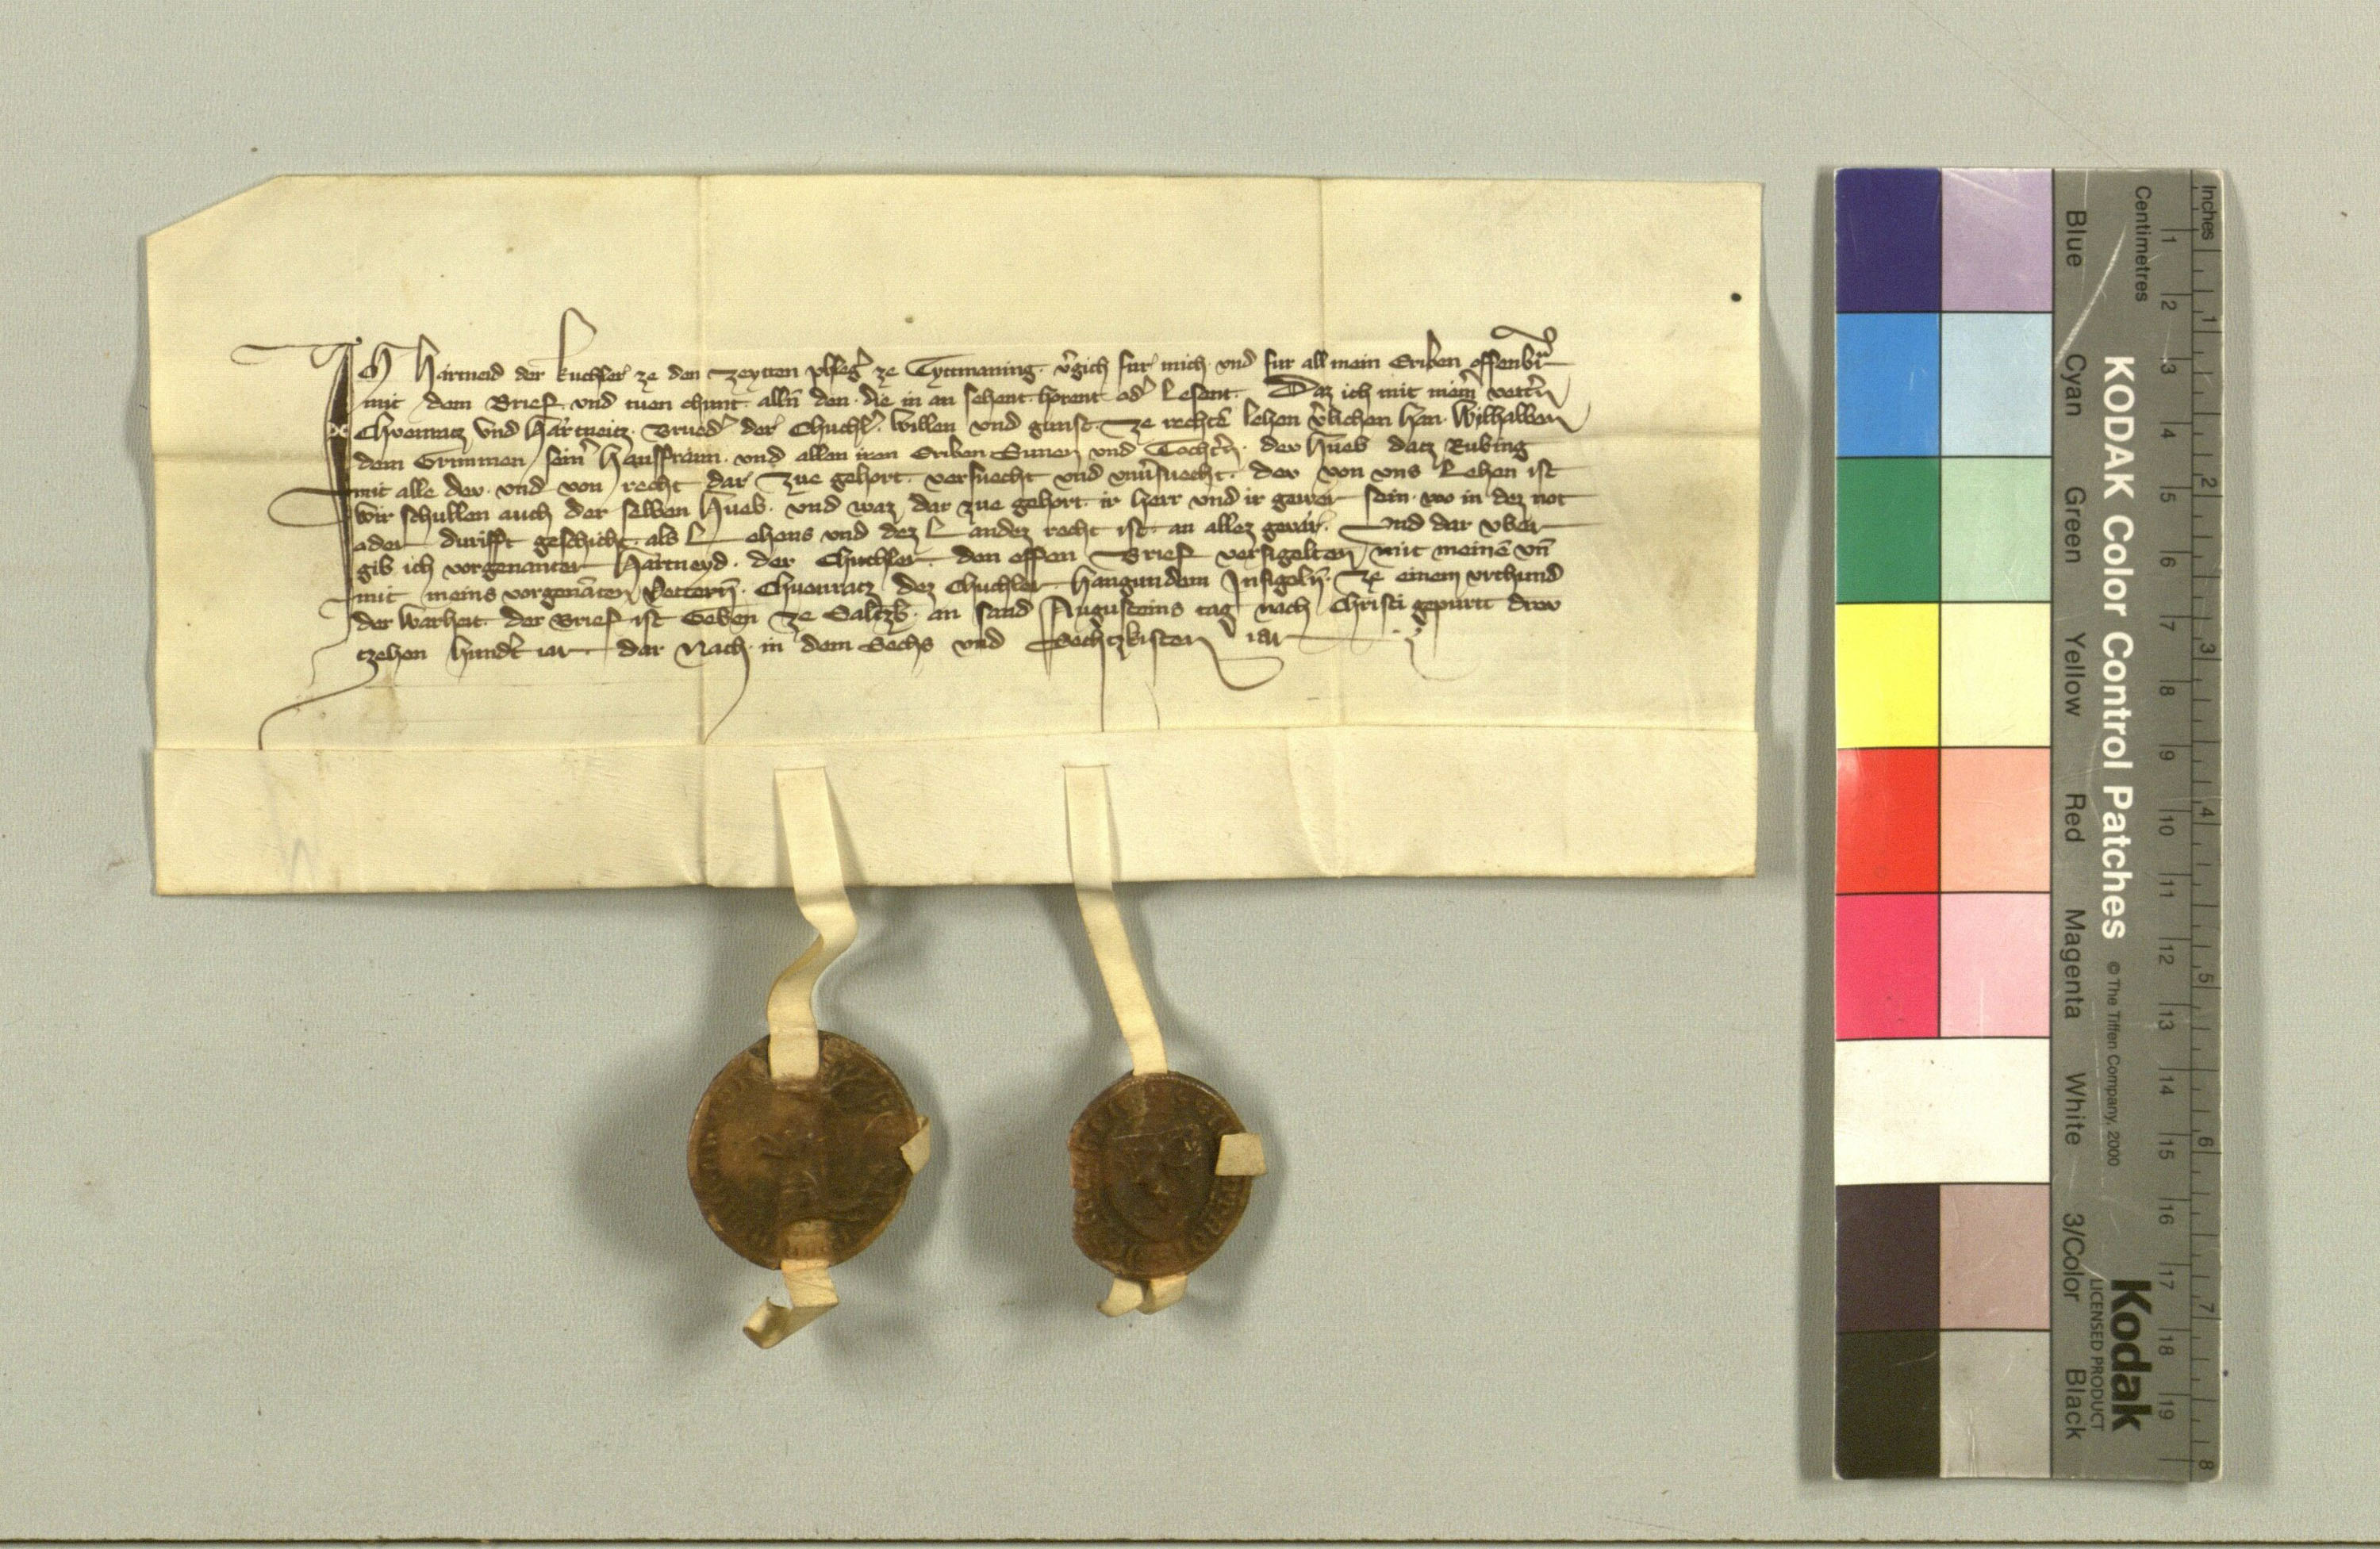 Ich Hartneid der kuchler ze den zeytten phleg̉ ze Tyttmaning. v̉gich fur mich vnd fur all mein Eriben offenbar
mit dem Brief vnd tuen chunt alln̄ den die in an sehent horent od̉ Lesent. Daz ich mit mein̉ vett̉n
Chvenratz vnd Hartneitz Brued̉ der Chuchl̉. willen vnd gunst ze rechtē lehen v̉lichen han Wilhalben
dem Grimmen sein̉ Hausfraun. vnd allen iren Eriben Sunen vnd Tocht̉n. der Hueb datz Rubing
mit alle der vnd von recht dar zue gehort. versuecht vnd vnv̉suecht. der von vns Lehen ist
wir schullen auch der selben Hueb. vnd waz dar zue gehort ir herr vnd ir gewer sein. wo in dez not
oder durfft geschicht. als Lehens vnd dez Landez recht ist. an allez gevar. Vnd dar vber
gib ich vorgenanter Hartneyd. der Chuchler. den offen Brief versigelten mit meinē vn̄
mit meins vorgenāten Vettern̄. Chuenratz dez Chuchler Hangundem Insigeln̄. Ze einem vrchund
der warheit. der Brief ist Geben ze Saltzb̉. an sand Augusteins tag nach Christi gepurtt drew
tzehen hund̉t iar dar Nach in dem Sechs vnd Sechtzkisten iar
Inches
Centimetres
1 2 3 4 5 6 7 8 9 10 11 12 13 14 15 16 17 18 19
1 2 3 4 5 6 7 8
KODAK Color Control Patches © The Tiffen Company, 2000
Kodak
LICENSED PRODUCT
Blue Cyan Green Yellow Red Magenta White 3/Color Black